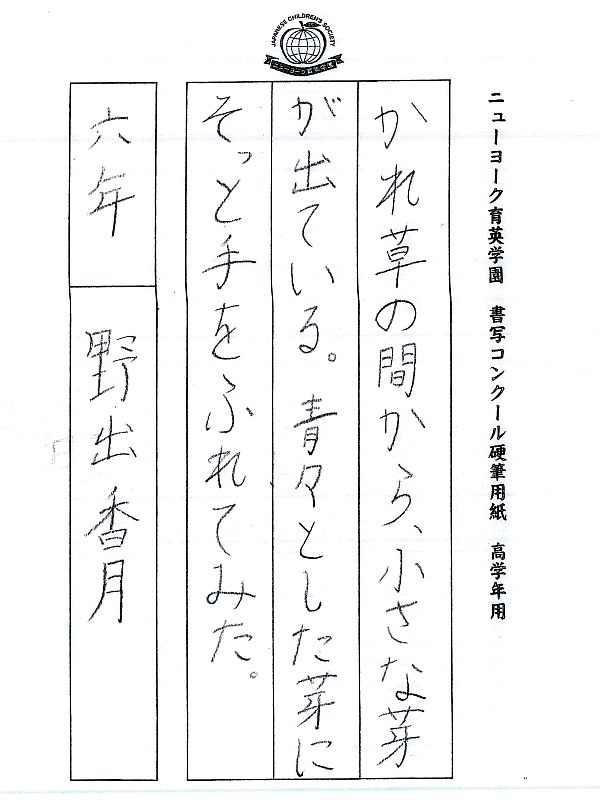 JAPANESE CHILDREN'S SOCIETY
ニューヨーク育英学園
ニューヨーク育英学園 書写コンクール硬筆用紙 高学年用
かれ草の間から、小さな芽
が出ている。青々とした芽に
そっと手をふれてみた。
六年 野出香月